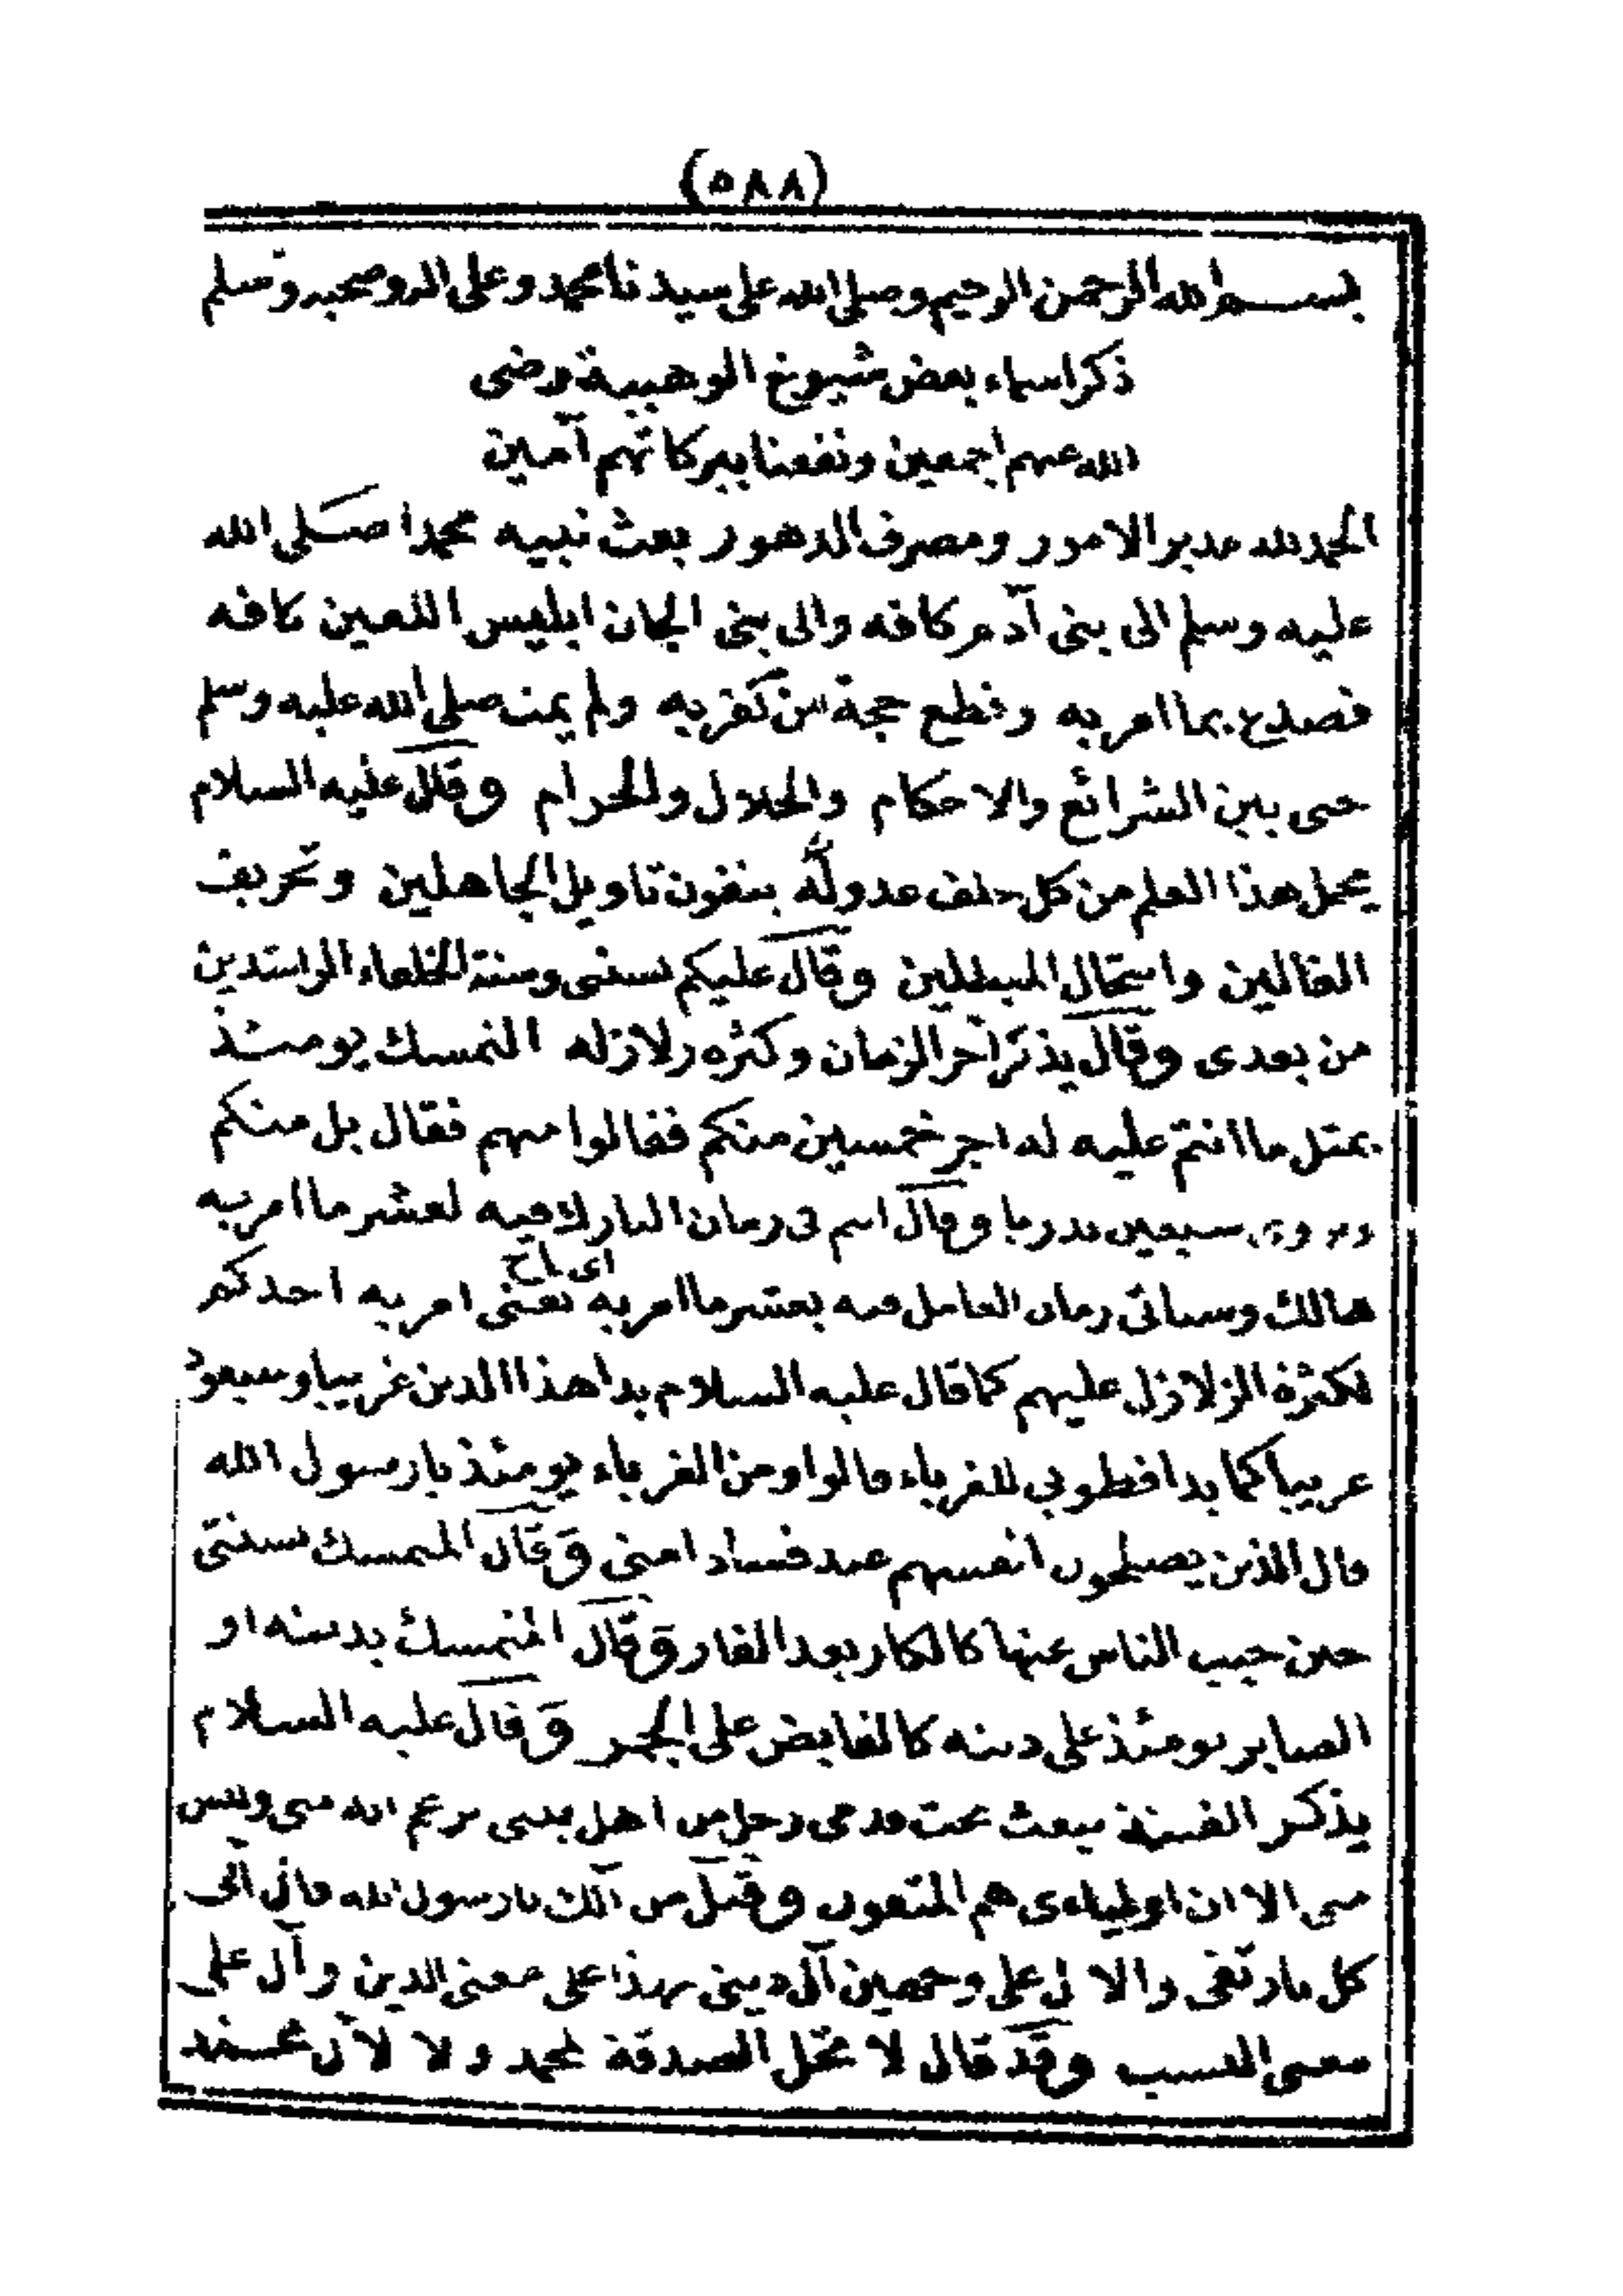 (٥٨٨)
بسم الله الرحمن الرحيم وصلى الله على سيدنا محمد وعلى اله وصحبه وسلم
ذكر اسماء بعض شيوخ الوهبية رضى
الله عنهم اجمعين ونفعنا ببركاتهم آمين
الحمد لله مدبر الامور ومصرف الدهور بعث نبيه محمدا صلى الله
عليه وسلم الى بنى آدم كافه والى بنى الجان ابليس اللعين كافه
فصدع بما امر به وقطع حجة من كفر به ولم يمت صلى الله عليه وسلم
حتى بين الشرائع والاحكام والحلال والحرام وقال عليه السلام
يحمل هذا العلم من كل خلف عدوله ينفون تاويل الجاهلين وتحريف
الغالين وانتحال المبطلين وقال عليكم بسنتى وسنة الخلفاء الراشدين
من بعدى وقال يذكر آخر الزمان وكثره زلازله المتمسك يومئذ
بمثل ما انتم عليه له اجر خمسين منكم فقالوا منهم فقال بل منكم
سبعين بدريا وقال انتم فى زمان التارك فيه لعشر ما امر به
هالك وسياتى زمان العامل فيه بعشر ما امر به يعنى امر به احدكم
اى ناج
لكثرة الزلازل عليهم كما قال عليه السلام بدا هذا الدين غريبا وسيعود
غريبا كما بدا فطوبى للغرباء قالوا ومن الغرباء يومئذ يا رسول الله
قال الذين يصلحون انفسهم عند فساد امتى وقال المتمسك بسنتى
حين خبب الناس عنها كالكار بعد الفار وقال المتمسك بدينه او
الصابر يومئذ على دينه كالقابض على الجمر وقال عليه السلام
يذكر الفتنة تبعث تحت قدمى رجل من اهل بيتى يزعم انه منى وليس
منى الا ان اوليائى هم المتقون وقيل من آلك يا رسول الله قال آلى
كل ما رتقى والا لى على وجهين آل دينى بهذا على معنى الدين وآل على
معنى النسب وقد قال لا تحل الصدقة لمحمد ولا لآل محمد